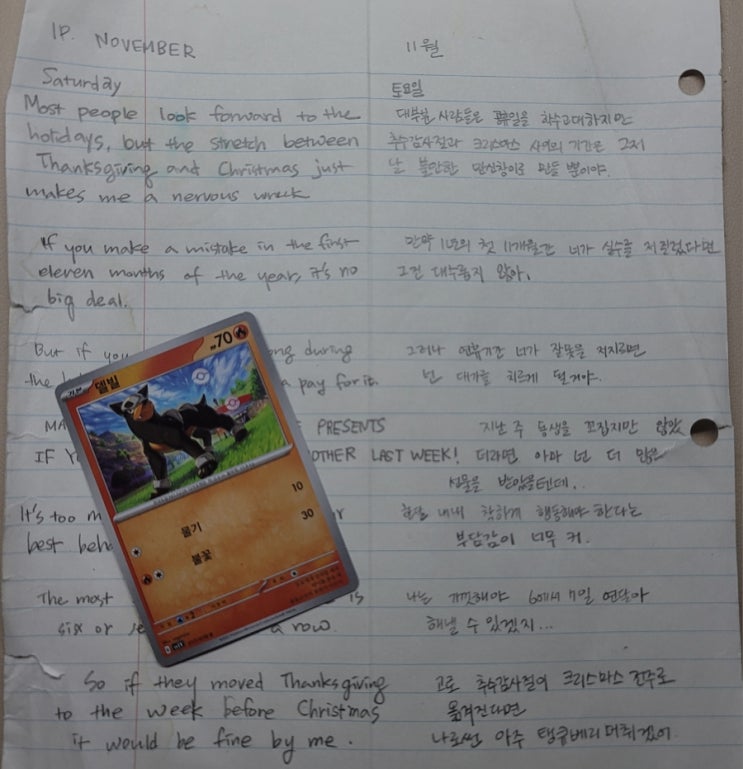 1P. NOVEMBER
Saturday
Most people look forward to the
holidays, but the stretch between
Thanksgiving and Christmas just
makes me a nervous wreck
If you make a mistake in the first
eleven months of the year, it's no
big deal.
But if you during
the pay for it.
PRESENTS
IF OTHER LAST WEEK!
It's too
best
The most is
six or a row.
So if they moved Thanksgiving
to the week before Christmas
it would be fine by me.
11월
토요일
대부분 사람들은 휴일을 학수고대하지만
추수감사절과 크리스마스 사이의 기간은 그저
날 불안한 만신창이로 만들 뿐이야.
만약 1년의 첫 11개월간 너가 실수를 저질렀다면
그건 대수롭지 않아.
그러나 연휴기간 너가 잘못을 저지르면
넌 대가를 치르게 될거야.
지난 주 동생을 꼬집지만 않았
더라면 아마 넌 더 많은
선물을 받았을텐데..
한달 내내 착하게 행동해야 한다는
부담감이 너무 커.
나는 기껏해야 6에서 7일 연달아
해낼 수 있겠지...
고로 추수감사절이 크리스마스 전주로
옮겨진다면
나로썬 아주 탱큐베리머취겠어.
기본 델빌 HP 70
물기 10
불꽃 30